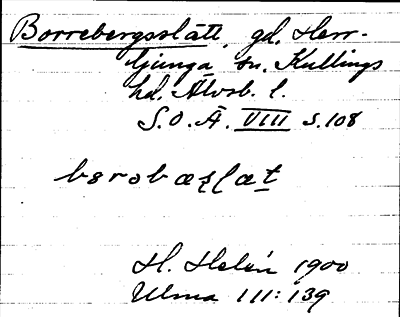 Borrebergsslätt, gd. Herr-
ljunga sn. Kullings
hd. Älvsb. l.
S.O.Ä. VIII s. 108
H. Helén 1900
Ulma 111:139